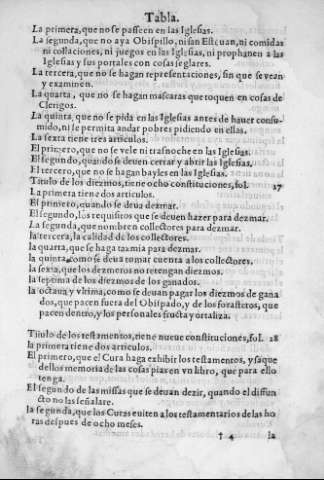 Tabla.
La primera, que no se passeen en las Iglesias.
La segunda, que no aya Obispillo, ni san Esteuan, ni comidas
ni collaciones, ni juegos en las Iglesias, ni prophanen a las
Iglesias y sus portales con cosas seglares.
La tercera, que no se hagan representaciones, sin que se vean
y examinen.
La quarta, que no se hagan mascaras que toquen en cosas de
Clerigos.
La quinta, que no se pida en las Iglesias antes de hauer consu-
mido, ni se permita andar pobres pidiendo en ellas.
La sexta tiene tres articulos.
El primero, que no se vele ni trasnoche en las Iglesias.
El segundo, quando se deuen cerrar y abrir las Iglesias.
El tercero, que no se hagan bayles en las Iglesias.
Titulo de los diezmos, tiene ocho constituciones, fol. 27
La primera tiene dos articulos.
El primero, quando se deua dezmar.
El segundo, los requisitos que se deuen hazer para dezmar.
La segunda, que nombren collectores para dezmar.
la tercera, la calidad de los collectores.
la quarta, que se haga tazmia para dezmar.
la quinta, como se deua tomar cuenta a los collectores.
la sexta, que los dezmeros no retengan diezmos.
la septima de los diezmos de los ganados.
la octaua y vltima, como se deuan pagar los diezmos de gana
dos, que pacen fuera del Obispado, y de los forasteros, que
pacen dentro, y los personales fructa y ortaliza.
Titulo de los testamentos, tiene nueue constituciones, fol. 28
la primera tiene dos articulos.
El primero, que el Cura haga exhibir los testamentos, y saque
dellos memoria de las cosas pias en vn libro, que para ello
tenga.
El segundo de las missas que se deuan dezir, quando el diffun
cto no las señalare.
la segunda, que los Curas euiten a los testamentarios de las ho
ras despues de ocho meses.
† 4 la